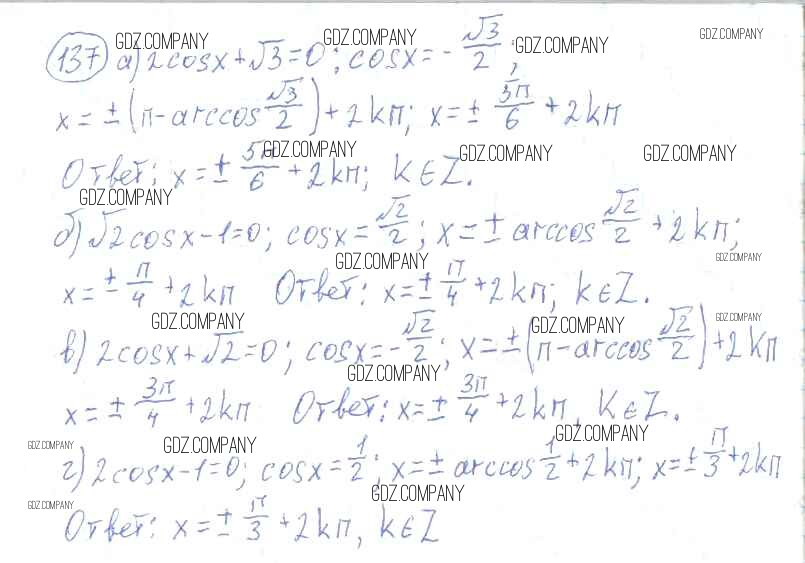 GDZ.COMPANY GDZ.COMPANY GDZ.COMPANY GDZ.COMPANY
137 а) 2cosx+√3=0; cosx=-√3/2;
x=±(π-arccos√3/2)+2kπ; x=±5π/6+2kπ
GDZ.COMPANY GDZ.COMPANY GDZ.COMPANY
Ответ: x=±5π/6+2kπ; K∈Z.
GDZ.COMPANY
б) √2cosx-1=0; cosx=√2/2; x=±arccos√2/2+2kπ;
GDZ.COMPANY GDZ.COMPANY
x=±π/4+2kπ Ответ: x=±π/4+2kπ; k∈Z.
GDZ.COMPANY GDZ.COMPANY GDZ.COMPANY
в) 2cosx+√2=0; cosx=-√2/2; x=±(π-arccos√2/2)+2kπ
GDZ.COMPANY
x=±3π/4+2kπ Ответ: x=±3π/4+2kπ, K∈Z.
GDZ.COMPANY GDZ.COMPANY GDZ.COMPANY
г) 2cosx-1=0; cosx=1/2; x=±arccos1/2+2kπ; x=±π/3+2kπ
GDZ.COMPANY GDZ.COMPANY
Ответ: x=±π/3+2kπ, k∈Z